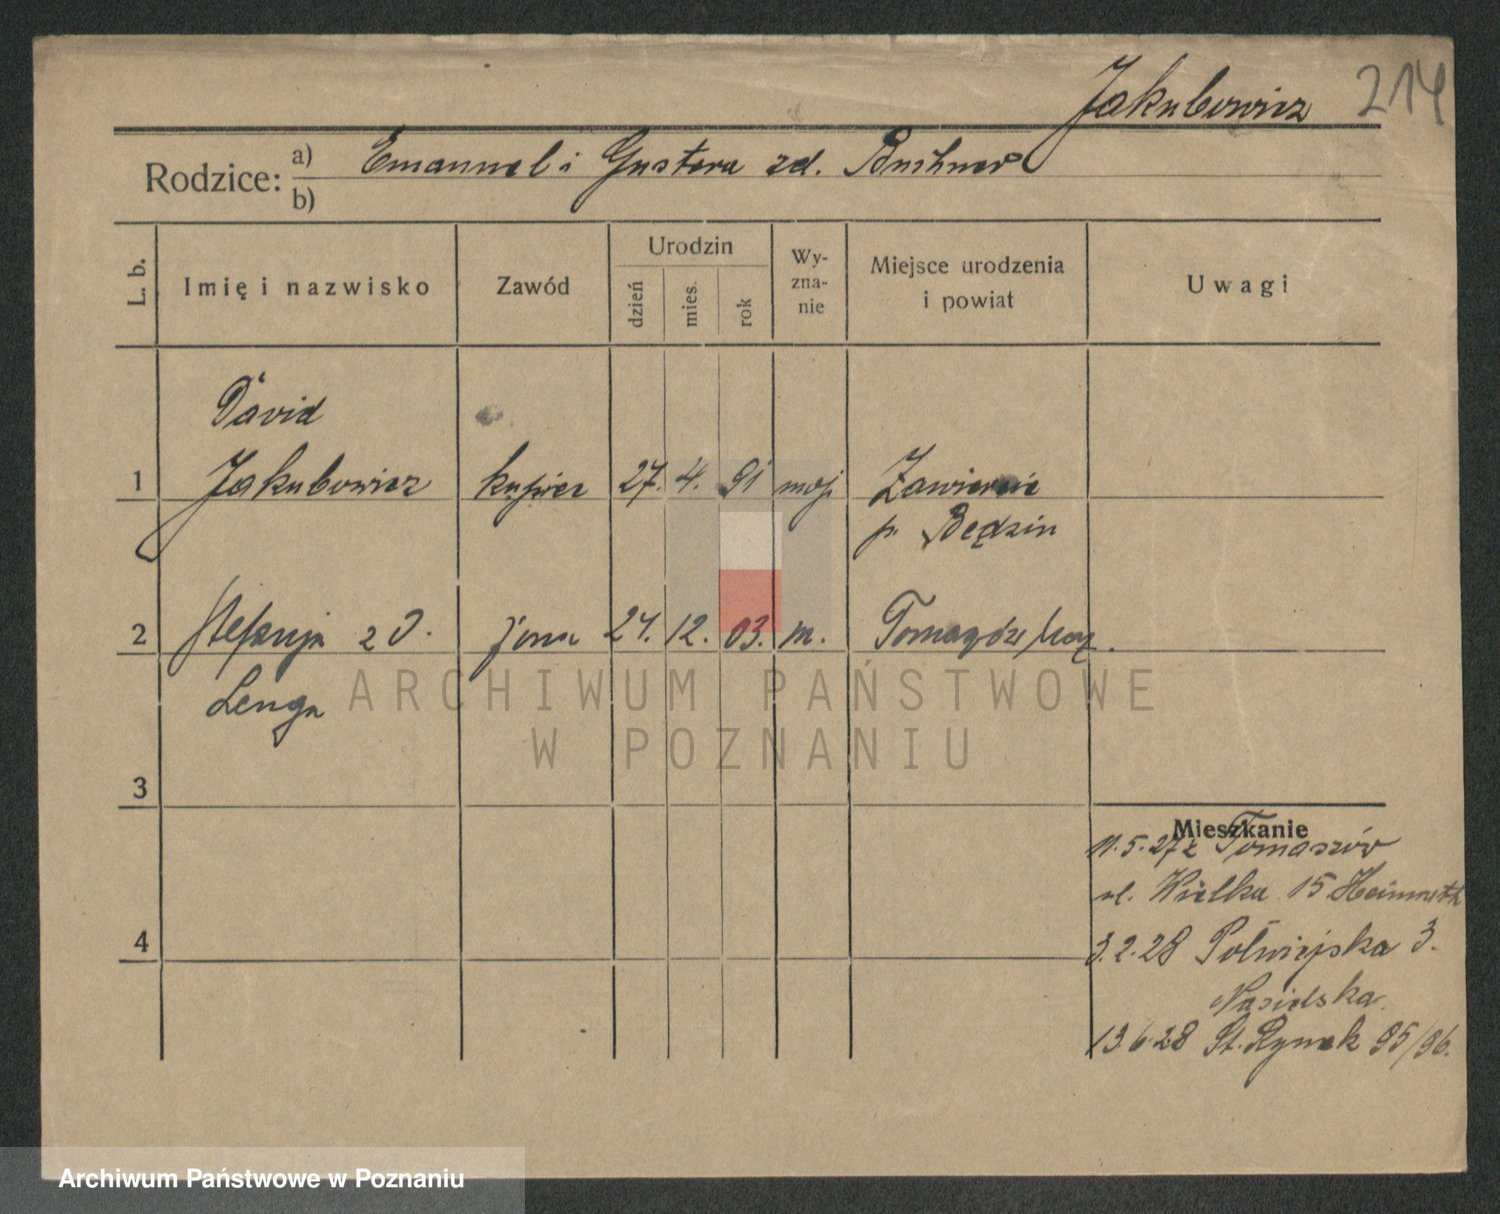 Jakubowicz 214
Rodzice: a) Emanuel i Gustava zd.
b)
L. b. Imię i nazwisko Zawód Urodzin dzień mies. rok Wy-zna-nie Miejsce urodzenia i powiat Uwagi
David
1 Jakubowicz kupiec 27. 4. 91 mojż Zawiercie
p. Będzin
2 Stefanja zd. żona 24. 12. 03. m. Tomaszów Maz.
Lenga
ARCHIWUM PAŃSTWOWE
W POZNANIU
3
Mieszkanie
11.5.27 z Tomaszów
ul. Wielka 15
4
3.2.28 Półwiejska 3.
Nasielska
13.6.28 St. Rynek 95/96.
Archiwum Państwowe w Poznaniu